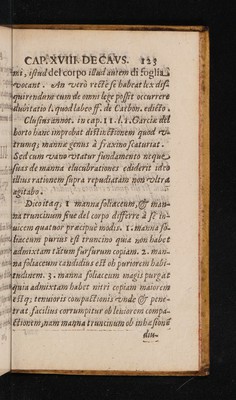 CAP. XVIII. DE CAVS. 123
ni, istud del corpo illud autem di foglia
vocant. An verò rectè se habeat lex dis-
quirendum cum de omni lege possit occurrere
dubitatio l. quod labeo ff. de Carbon. edicto.
Clusius annot. in cap. 11. l. 1. Garciæ del
horto hanc improbat distinctionem quod v-
trumq; mannæ genus à fraxino scaturiat.
Sed cum vano vtatur fundamento neque
suas de manna elucubrationes ediderit ideo
illius rationem supra repudiatam non vltra
agitabo.
Dico itaq, 1 manna foliaceum, & man-
na truncinum siue del corpo differre à se in-
uicem quatuor præcipuè modis. 1. manna fo-
liaceum purius est truncino quia non habet
admixtam tātum furfurum copiam. 2. man-
na foliaceum candidius est ob puriorem habi-
tudinem. 3. manna foliaceum magis purgat
quia admixtam habet nitri copiam maiorem
estq; tenuioris compactionis vnde & pene-
trat facilius corrumpitur ob leuiorem compa-
ctionem, nam manna truncinum ob inhæsionē
diu-